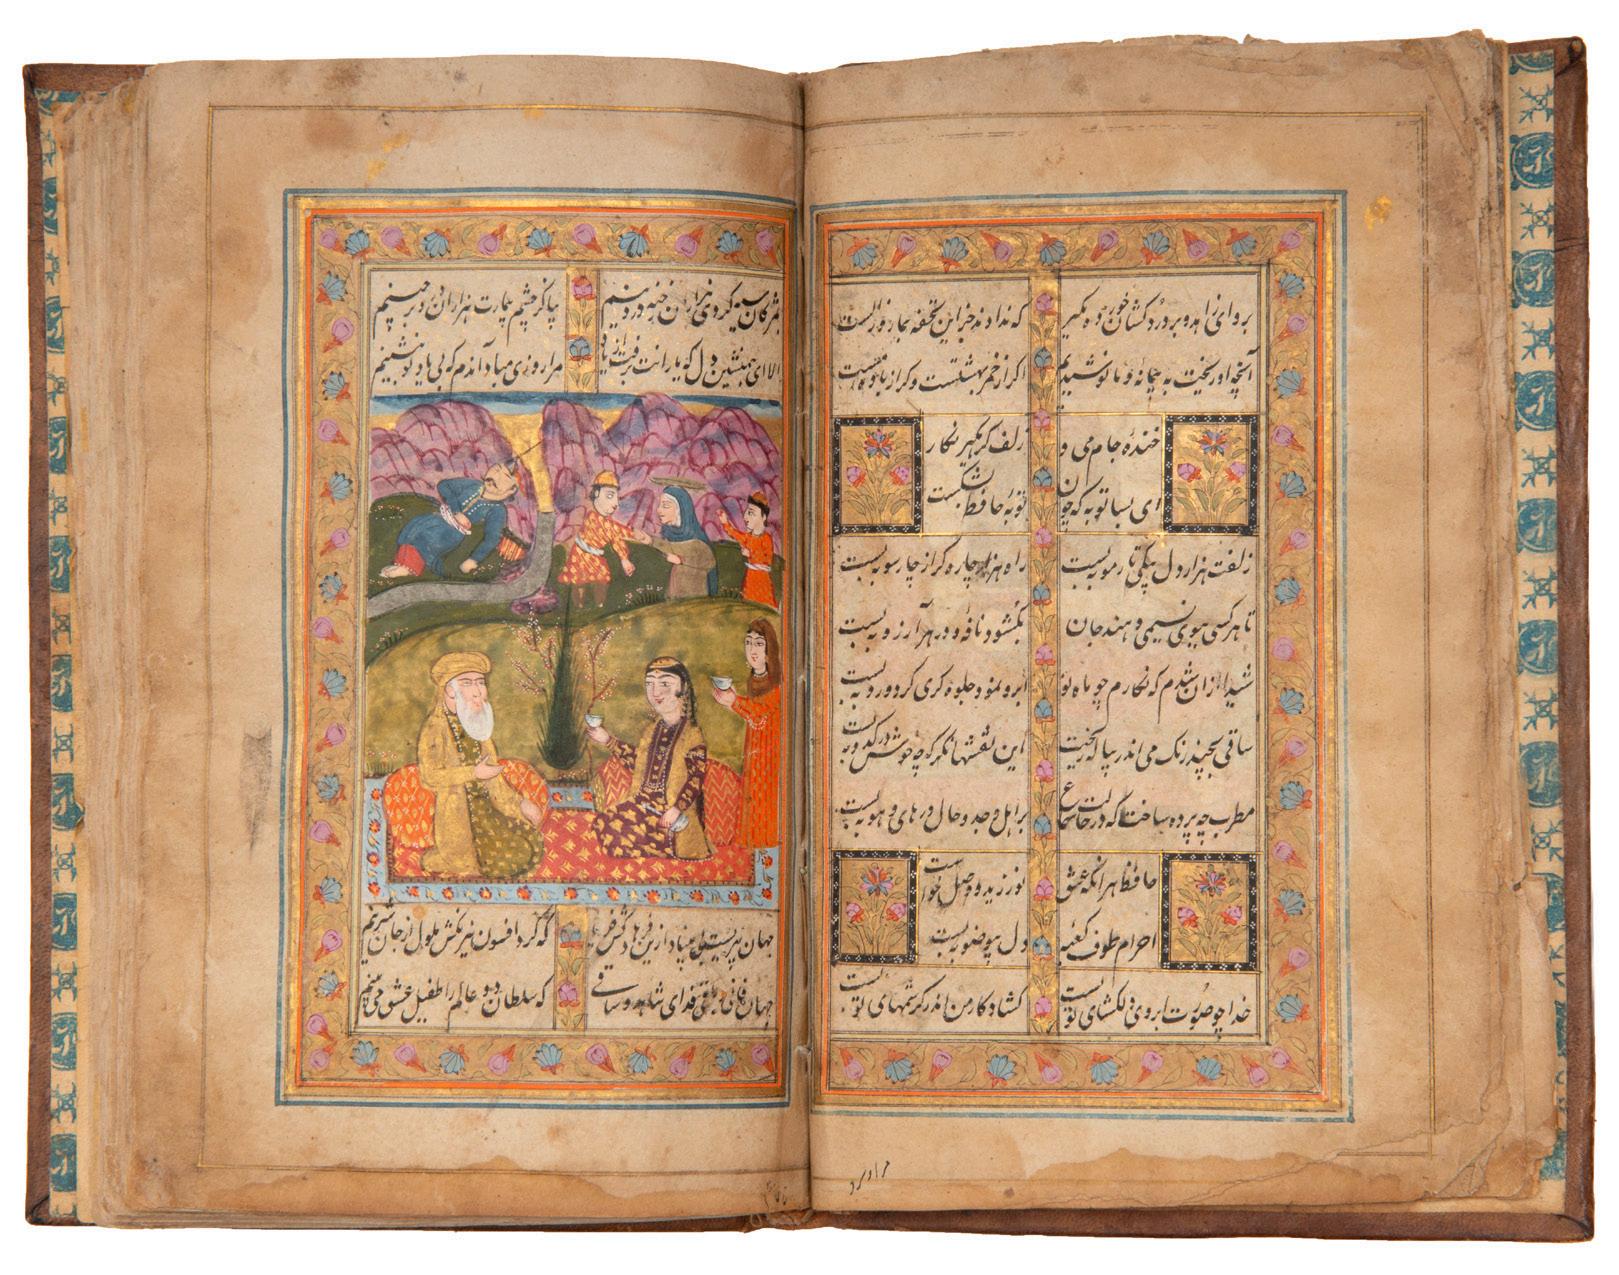 برو ای زاهد و بر دردکشان خورده مگیر که ندادند جز این تحفه بما روز الست
آنچه او ریخت به پیمانه و ما نوشیدیم اگر از خمر بهشتست وگر از باده مست
خندهٔ جام می و زلف گره‌گیر نگار
ای بسا توبه که چون توبهٔ حافظ بشکست
زلفت هزار دل بیکی تار مو ببست راه هزار چاره‌گر از چارسو ببست
تا هر کسی ببوی نسیمی دهند جان بگشود نافه و در هر آرزو ببست
شیدا از آن شدم که نگارم چو ماه نو ابرو نمود و جلوه‌گری کرد و رو ببست
ساقی بچند رنگ می اندر پیاله ریخت این نقشها نگر که چه خوش در کدو ببست
مطرب چه پرده ساخت که در حلقهٔ سماع بر اهل وجد و حال در های و هو ببست
حافظ هر آنکه عشق نورزید و وصل خواست
احرام طوف کعبهٔ دل بیوضو ببست
خدا چو صورت ابروی دلگشای تو بست گشاد کار من اندر کرشمهای تو بست
بمژگان سیه کردی هزاران رخنه در دینم بیا کز چشم بیمارت هزاران درد برچینم
الا ای همنشین دل که یارانت برفت از یاد مرا روزی مباد آندم که بی یاد تو بنشینم
جهان پیرست و بی‌بنیاد ازین فرهادکش فریاد که کرد افسون و نیرنگش ملول از جان شیرینم
جهان فانی و باقی فدای شاهد و ساقی که سلطانی دو عالم را طفیل عشق می‌بینم